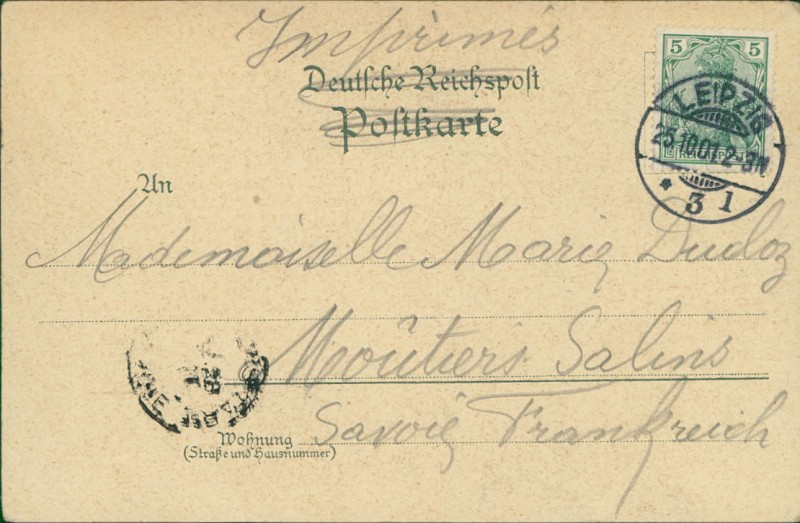 Imprimés
Deutsche Reichspost
Postkarte
5 5
REICHSPOST
LEIPZIG
25.10.01.2-3N
* 3 1
An
Mademoiselle Marie Dudoz
Moûtiers Salins
Savoie Frankreich
Wohnung
(Straße und Hausnummer)